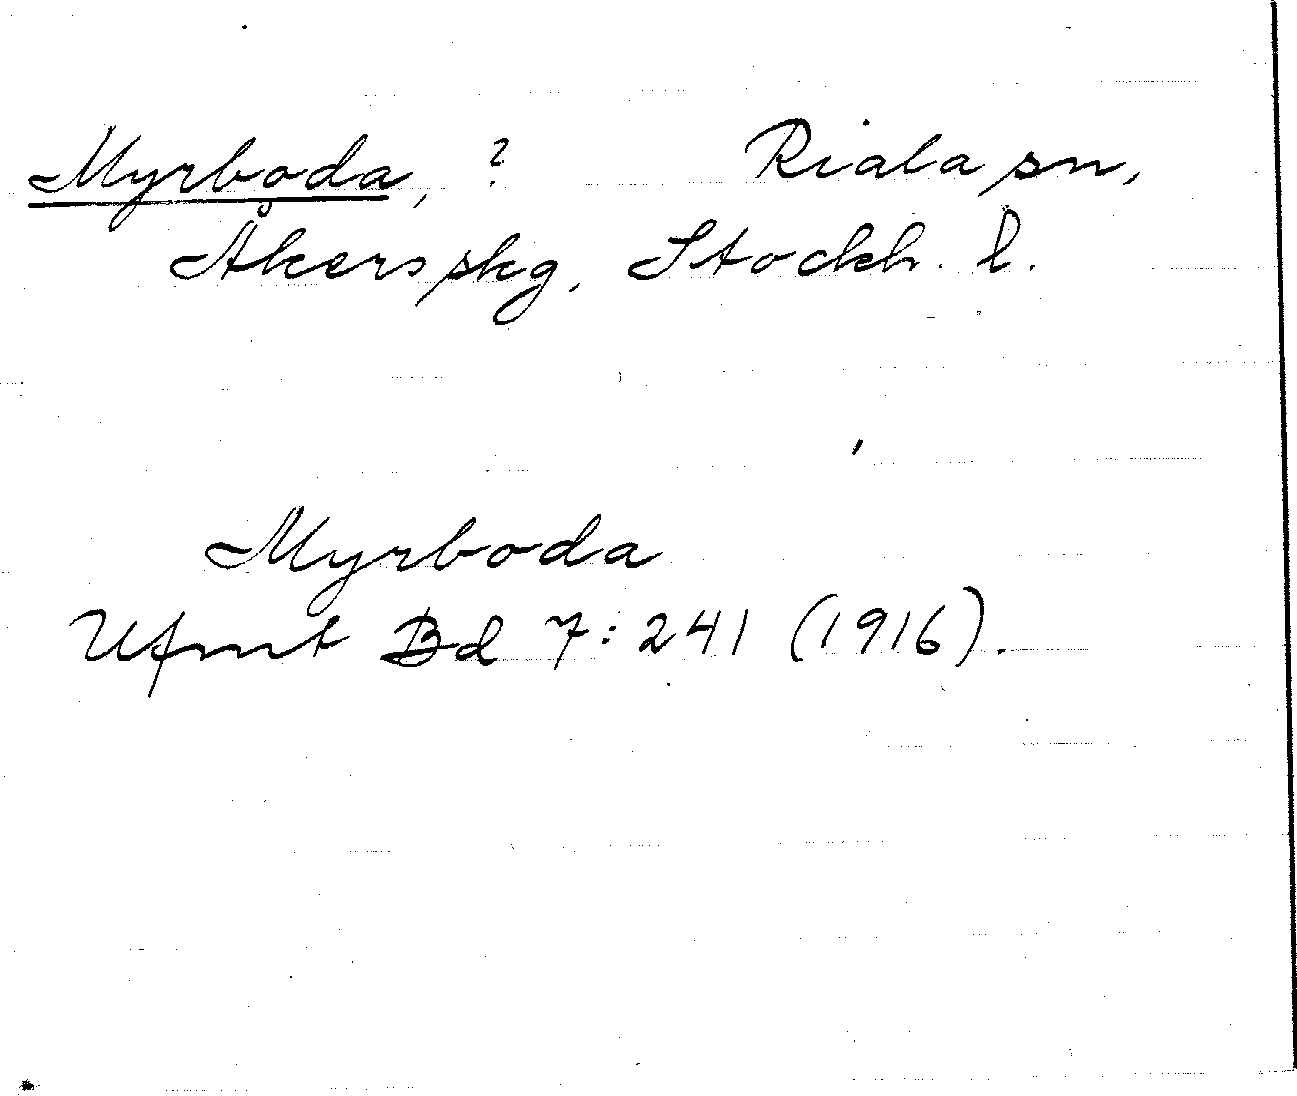 Myrboda, ? Riala sn,
Åkers skg, Stockh. l.
Myrboda
Ufmt Bd 7:241 (1916).